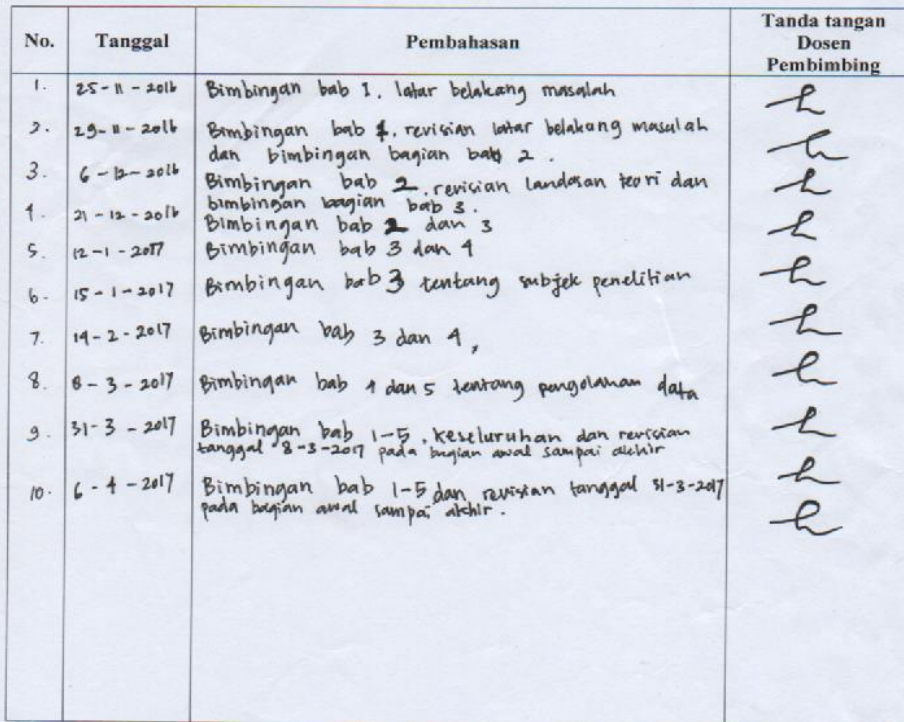 No. Tanggal Pembahasan Tanda tangan
Dosen
Pembimbing
1. 25-11-2016 Bimbingan bab 1. latar belakang masalah
2. 29-11-2016 Bimbingan bab 1. revisian latar belakang masalah
dan bimbingan bagian bab 2.
3. 6-12-2016 Bimbingan bab 2. revisian landasan teori dan
bimbingan bagian bab 3.
4. 21-12-2016 Bimbingan bab 2 dan 3
5. 12-1-2017 Bimbingan bab 3 dan 4
6. 15-1-2017 Bimbingan bab 3 tentang subjek penelitian
7. 14-2-2017 Bimbingan bab 3 dan 4,
8. 8-3-2017 Bimbingan bab 4 dan 5 tentang pengolahan data
9. 31-3-2017 Bimbingan bab 1-5. keseluruhan dan revisian
tanggal 8-3-2017 pada bagian awal sampai akhir
10. 6-4-2017 Bimbingan bab 1-5 dan revisian tanggal 31-3-2017
pada bagian awal sampai akhir.